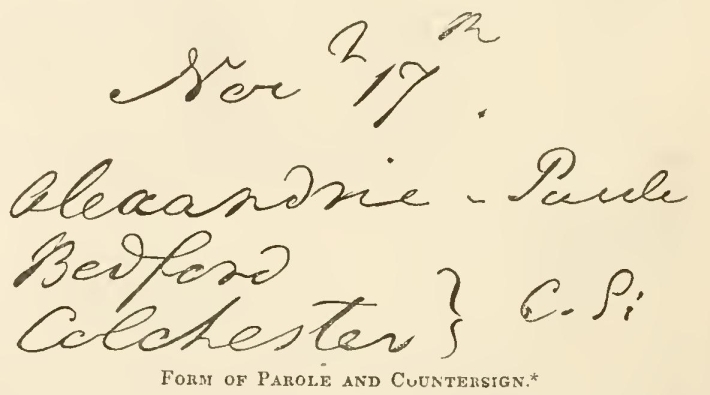 Novr 17th.
Alexandrie - Parole
Bedford
Colchester } C. Si
FORM OF PAROLE AND COUNTERSIGN.*